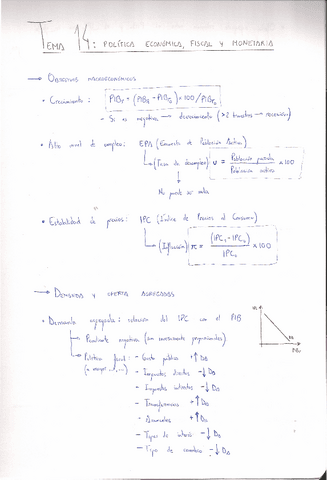 TEMA 14: POLÍTICA ECONÓMICA, FISCAL Y MONETARIA
→ OBJETIVOS MACROECONÓMICOS
• Crecimiento: PIBr = (PIB1 - PIB0) × 100 / PIB0
- Si es negativo → decrecimiento (>2 trimestres → recesión)
• Alto nivel de empleo: EPA (Encuesta de Población Activa)
(Tasa de desempleo) u = Población parada / Población activa × 100
No puede ser nula
• Estabilidad de precios: IPC (Índice de Precios al Consumo)
(Inflación) π = (IPC1 - IPC0) / IPC0 × 100
→ DEMANDA Y OFERTA AGREGADAS
• Demanda agregada: relación del IPC con el PIB
Pendiente negativa (son inversamente proporcionales)
Política fiscal: - Gasto público +↑ DA
(a mayor ...) - Impuestos directos -↓ DA
- Impuestos indirectos -↓ DA
- Transferencias +↑ DA
+↑ DA
- Tipos de interés -↓ DA
- Tipo de cambio -↓ DA